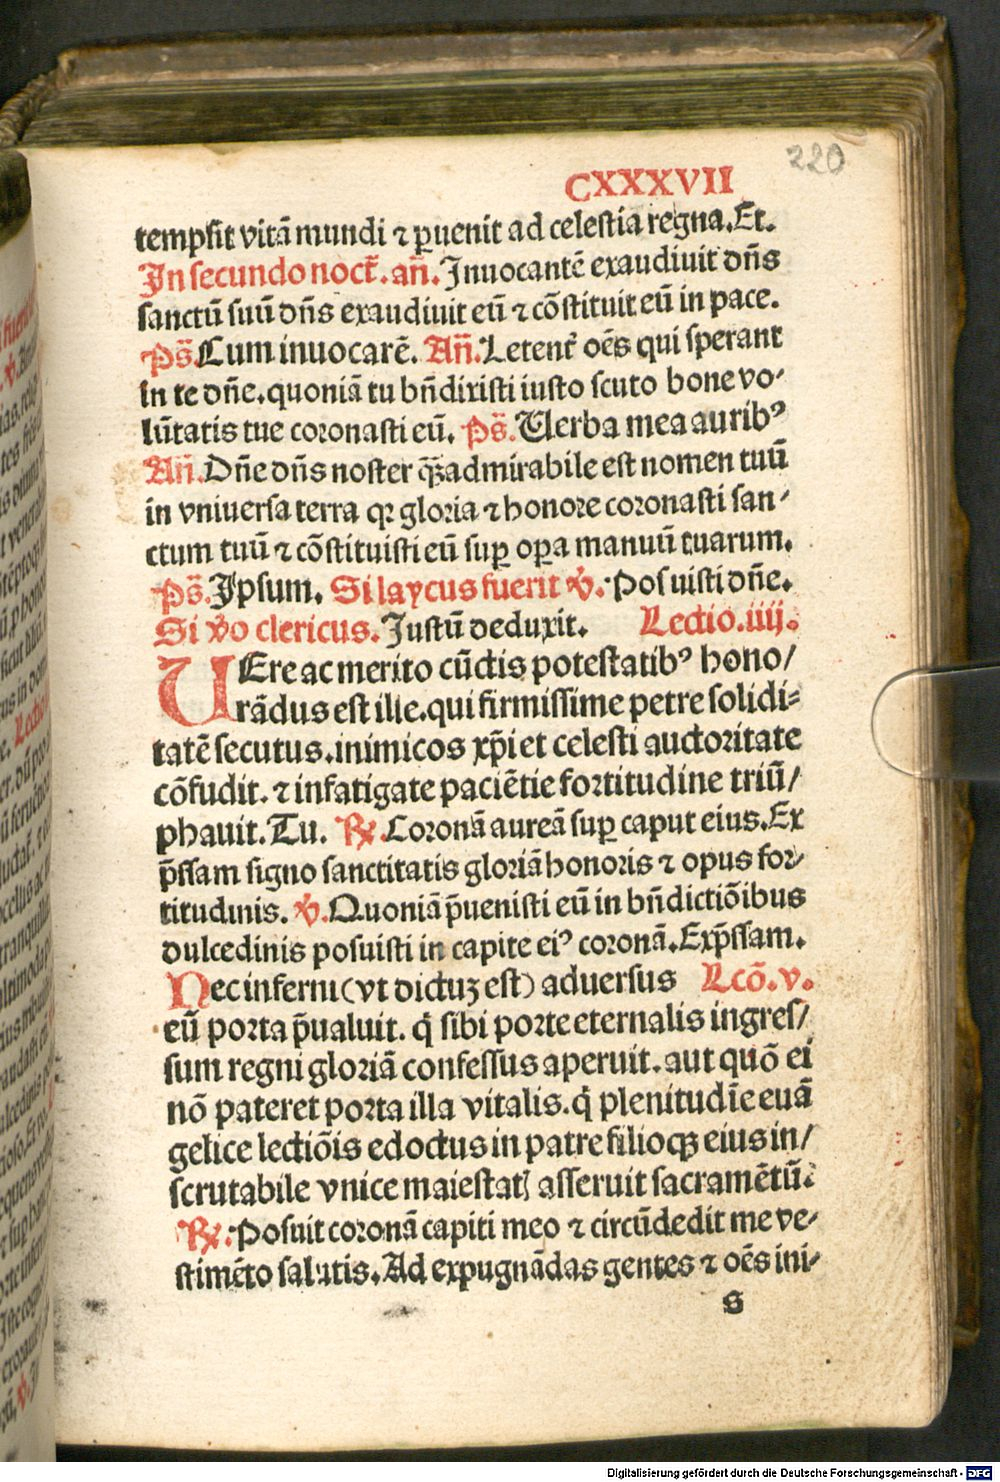 220
CXXXVII
tempsit vitā mundi ⁊ ꝑuenit ad celestia regna. Et.
In secundo noct̄. an̄. Inuocantē exaudiuit dn̄s
sanctū suū dn̄s exaudiuit eū ⁊ cōstituit eū in pace.
Ps̄. Cum inuocarē. An̄. Letent̄ oēs qui sperant
in te dn̄e. quoniā tu bn̄dixisti iusto scuto bone vo-
lūtatis tue coronasti eū. Ps̄. Uerba mea auribꝰ
An̄. Dn̄e dn̄s noster q̄ꝫ admirabile est nomen tuū
in vniuersa terra qꝛ gloria ⁊ honore coronasti san-
ctum tuū ⁊ cōstituisti eū suꝑ oꝑa manuū tuarum.
Ps̄. Ipsum. Si laycus fuerit ꝟ. Posuisti dn̄e.
Si ꝟo clericus. Iustū deduxit. Lectio. iiij.
UEre ac merito cūctis potestatibꝰ hono/
rādus est ille. qui firmissime petre solidi-
tatē secutus. inimicos xp̄i et celesti auctoritate
cōfudit. ⁊ infatigate paciētie fortitudine triū/
phauit. Tu. ℟. Coronā aureā suꝑ caput eius. Ex
p̄ssam signo sanctitatis gloriā honoris ⁊ opus for-
titudinis. ꝟ. Quoniā p̄uenisti eū in bn̄dictiōibus
dulcedinis posuisti in capite eiꝰ coronā. Exp̄ssam.
Nec inferni (vt dictuꝫ est) aduersus Lcō. v.
eū porta p̄ualuit. q̄ sibi porte eternalis ingres/
sum regni gloriā confessus aperuit. aut quō ei
nō pateret porta illa vitalis. q̄ plenitudīe euā
gelice lectiōis edoctus in patre filioqꝫ eius in/
scrutabile vnice maiestatꝭ asseruit sacramētū.
℟. Posuit coronā capiti meo ⁊ circūdedit me ve-
stimēto salutis. Ad expugnādas gentes ⁊ oēs ini-
s
Digitalisierung gefördert durch die Deutsche Forschungsgemeinschaft - DFG